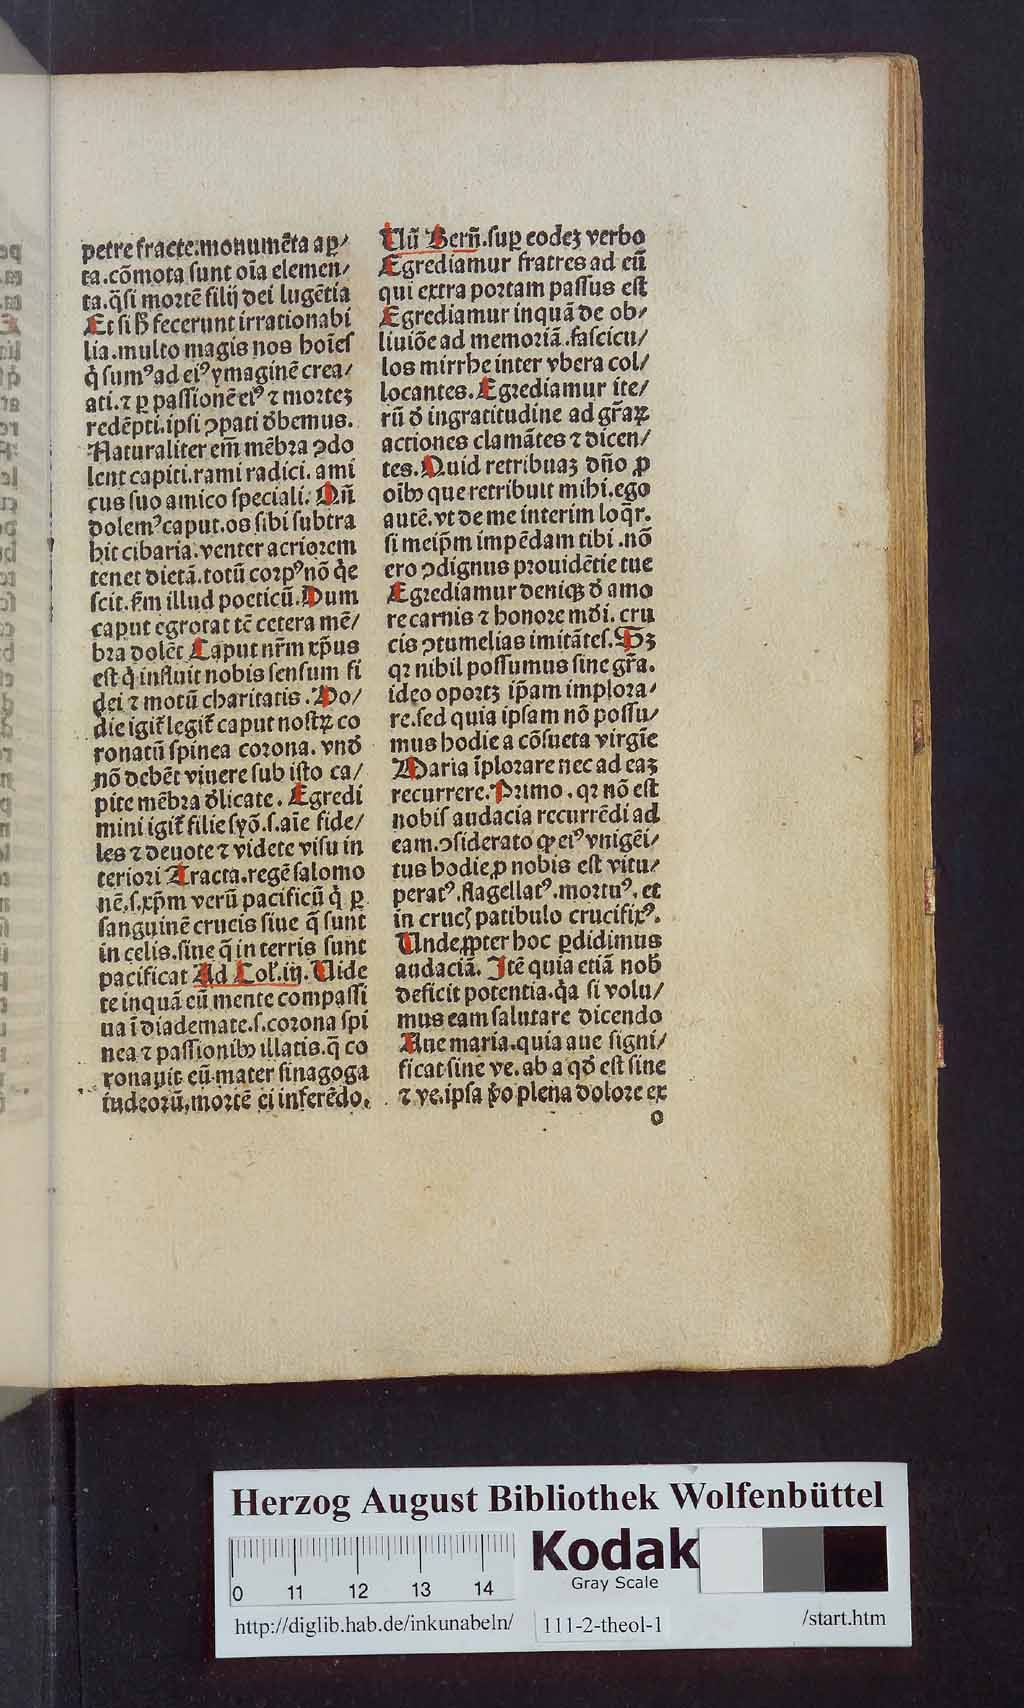 petre fracte:monumēta aꝑ/
ta.cōmota ſunt oīa elemen/
ta.q̄ſi moꝛtē filij dei lugētia
Et ſi h̄ fecerunt irrationabi
lia.multo magis nos hoīeſ
q̇ ſumꝰ ad eiꝰ ymaginē crea/
ati.ꞇ ꝑ paſſionē eiꝰ ꞇ moꝛteꝫ
redēpti.ipſi ꝯpati ð̄bemus.
Naturaliter em̄ mēbꝛa ꝯdo
lent capiti.rami radici. ami
cus ſuo amico ſpeciali. Qn̄
dolemꝰ caput.os ſibi ſubtra
hit cibaria.venter acrioꝛem
tenet dietā.totū coꝛpꝰ nō q̇e
ſcit.ẜm illud poeticū.Dum
caput egrotat tē cetera mē/
bꝛa dolēt Caput nr̄m xp̄us
eſt q̇ influit nobis ſenſum fi
dei ꞇ motū charitatis.Ho/
die igit̉ legit̉ caput noſtꝝ co
ronatū ſpinea coꝛona. vnð
nō debēt viuere ſub iſto ca/
pite mēbꝛa ð̄licate. Egredi
mini igit̉ filie ſyō.ſ.aīe fide/
les ꞇ deuote ꞇ videte viſu in
terioꝛi Tracta.regē ſalomo
nē.ſ.xp̄m verū pacificū q̇ ꝑ
ſanguinē crucis ſiue q̄ ſunt
in celis.ſiue q̄ in terris ſunt
pacificat Ad Col̓.iij. Uide
te inquā eū mente compaſſi
ua ī diademate.ſ.coꝛona ſpi
nea ꞇ paſſionibꝰ illatis.q̄ co
ronauit eū mater ſinagoga
iudeoꝛū,moꝛtē ei inferēdo.
Uñ Bern̄.ſuꝑ eodeꝫ verbo
Egrediamur fratres ad eū
qui extra poꝛtam paſſus eſt
Egrediamur inquā de ob/
liuiōe ad memoꝛiā.faſcicu/
los mirrhe inter vbera col/
locantes. Egrediamur ite/
rū ð̄ ingratitudine ad gr̄aꝝ
actiones clamātes ꞇ dicen/
tes.Quid retribuaꝫ dn̄o ꝓ
oībꝰ que retribuit mihi.ego
autē.vt de me interim loq̄r.
ſi meip̄m impēdam tibi.nō
ero ꝯdignus pꝛouidētie tue
Egrediamur deniqꝫ ð̄ amo
re carnis ꞇ honoꝛe mð̄i. cru
cis ꝯtumelias imitāteſ.Sꝫ
qꝛ nihil poſſumus ſine gr̄a.
ideo opoꝛtꝫ ip̄am imploꝛa/
re.ſed quia ipſam nō poſſu/
mus hodie a cōſueta virgīe
Maria īploꝛare nec ad eaꝫ
recurrere.Pꝛimo. qꝛ nō eſt
nobiſ audacia recurrēdi ad
eam.ꝯſiderato ꝙ eiꝰ vnigēi/
tus hodie ꝓ nobis eſt vitu/
peratꝰ.flagellatꝰ.moꝛtuꝰ.et
in crucꝭ patibulo crucifixꝰ.
Unde ꝓpter hoc ꝑdidimus
audaciā. Itē quia etiā nob̄
deficit potentia.q̇a ſi volu/
mus eam ſalutare dicendo
Aue maria.quia aue ſigni/
ficat ſine ve. ab a qð eſt ſine
ꞇ ve.ipſa v̓o plena doloꝛe ex
o
Herzog August Bibliothek Wolfenbüttel
Kodak
Gray Scale
0 11 12 13 14
http://diglib.hab.de/inkunabeln/ 111-2-theol-1 /start.htm